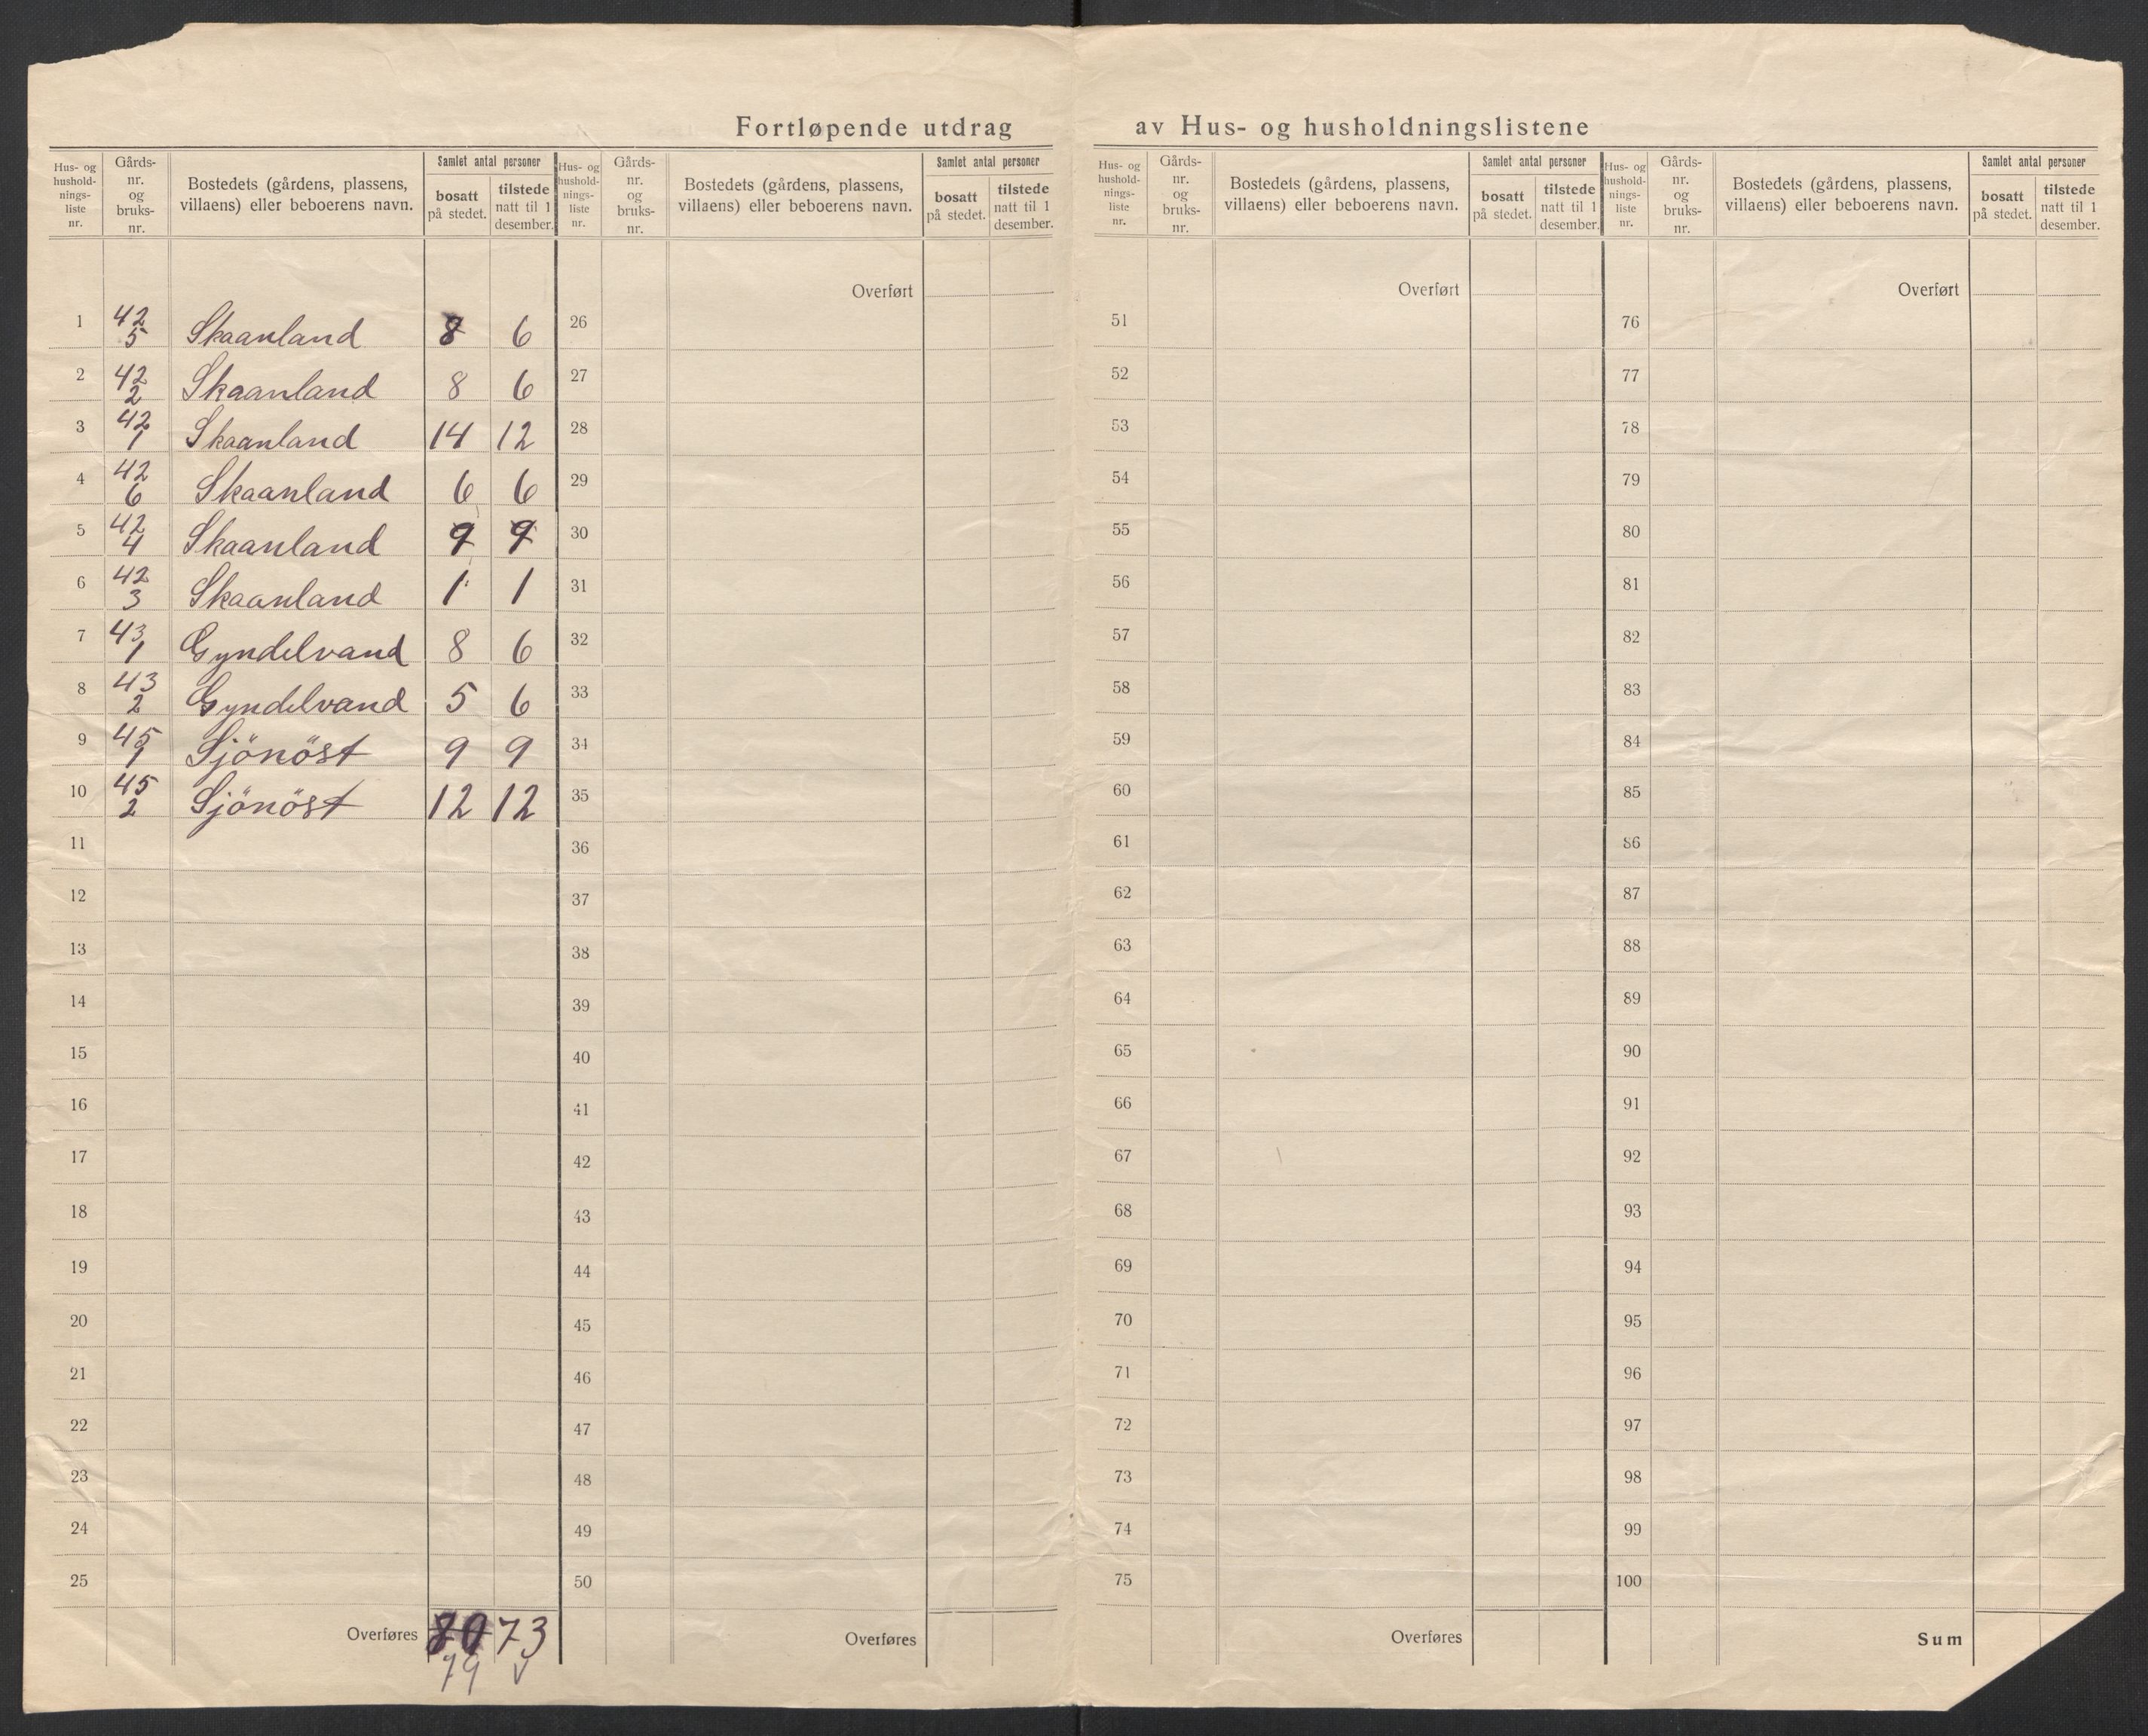 Fortløpende utdrag av Hus- og husholdningslistene
Hus- og hushold-nings-liste nr. Gårds-nr. og bruks-nr. Bostedets (gårdens, plassens, villaens) eller beboerens navn. Samlet antal personer bosatt på stedet. tilstede natt til 1 desember.
Hus- og hushold-nings-liste nr. Gårds-nr. og bruks-nr. Bostedets (gårdens, plassens, villaens) eller beboerens navn. Samlet antal personer bosatt på stedet. tilstede natt til 1 desember.
Hus- og hushold-nings-liste nr. Gårds-nr. og bruks-nr. Bostedets (gårdens, plassens, villaens) eller beboerens navn. Samlet antal personer bosatt på stedet. tilstede natt til 1 desember.
Hus- og hushold-nings-liste nr. Gårds-nr. og bruks-nr. Bostedets (gårdens, plassens, villaens) eller beboerens navn. Samlet antal personer bosatt på stedet. tilstede natt til 1 desember.
Overført Overført Overført
1 42 5 Skaanland 8 6 26 51 76
2 42 2 Skaanland 8 6 27 52 77
3 42 1 Skaanland 14 12 28 53 78
4 42 6 Skaanland 6 6 29 54 79
5 42 4 Skaanland 9 9 30 55 80
6 42 3 Skaanland 1 1 31 56 81
7 43 1 Gyndelvand 8 6 32 57 82
8 43 2 Gyndelvand 5 6 33 58 83
9 45 1 Sjönöst 9 9 34 59 84
10 45 2 Sjönöst 12 12 35 60 85
11 36 61 86
12 37 62 87
13 38 63 88
14 39 64 89
15 40 65 90
16 41 66 91
17 42 67 92
18 43 68 93
19 44 69 94
20 45 70 95
21 46 71 96
22 47 72 97
23 48 73 98
24 49 74 99
25 50 75 100
Overføres 80 73 Overføres Overføres Sum
79